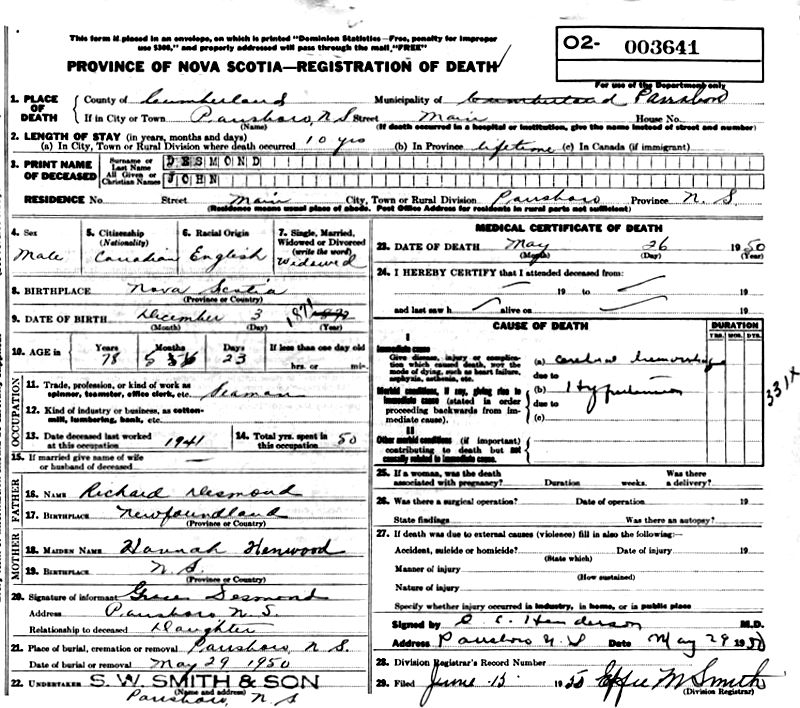 This form if placed in an envelope, on which is printed "Dominion Statistics—Free, penalty for improper
use $300," and properly addressed will pass through the mail "FREE"
PROVINCE OF NOVA SCOTIA—REGISTRATION OF DEATH
O2- 003641
For use of the Department only
1. PLACE OF DEATH { County of Cumberland Municipality of Cumberland Parrsboro
If in City or Town Parrsboro, N S Street Main House No.
(Name) (If death occurred in a hospital or institution, give the name instead of street and number)
2. LENGTH OF STAY (in years, months and days)
(a) In City, Town or Rural Division where death occurred 10 yrs (b) In Province lifetime (c) In Canada (if immigrant)
3. PRINT NAME OF DECEASED { Surname or Last Name DESMOND
All Given or Christian Names JOHN
RESIDENCE No. Street Main City, Town or Rural Division Parrsboro Province N. S.
(Residence means usual place of abode. Post Office Address for residents in rural parts not sufficient)
4. Sex Male
5. Citizenship (Nationality) Canadian
6. Racial Origin English
7. Single, Married, Widowed or Divorced (write the word) Widowed
8. BIRTHPLACE Nova Scotia
(Province or Country)
9. DATE OF BIRTH December 3 1871
(Month) (Day) (Year)
10. AGE in Years Months Days If less than one day old
78 5 23 hrs. or min.
11. Trade, profession, or kind of work as spinner, teamster, office clerk, etc. Seaman
12. Kind of industry or business, as cotton-mill, lumbering, bank, etc.
13. Date deceased last worked at this occupation 1941
14. Total yrs. spent in this occupation 50
OCCUPATION
15. If married give name of wife or husband of deceased —
FATHER
16. NAME Richard Desmond
17. BIRTHPLACE Newfoundland
(Province or Country)
MOTHER
18. MAIDEN NAME Hannah Henwood
19. BIRTHPLACE N. S.
(Province or Country)
20. Signature of informant Grace Desmond
Address Parrsboro N. S.
Relationship to deceased Daughter
21. Place of burial, cremation or removal Parrsboro, N S.
Date of burial or removal May 29 1950
22. UNDERTAKER S. W. SMITH & SON
(Name and address)
Parrsboro, N. S
MEDICAL CERTIFICATE OF DEATH
23. DATE OF DEATH May 26 1950
(Month) (Day) (Year)
24. I HEREBY CERTIFY that I attended deceased from:
19 to 19
and last saw h alive on 19
CAUSE OF DEATH DURATION
YRS. MOS. DYS.
I
Immediate cause
Give disease, injury or complication which caused death, not the mode of dying, such as heart failure, asphyxia, asthenia, etc.
(a) cerebral hemorrhage
due to
Morbid conditions, if any, giving rise to immediate cause (stated in order proceeding backwards from immediate cause).
(b) Hypertension
due to
(c)
331X
II
Other morbid conditions (if important) contributing to death but not causally related to immediate cause.
25. If a woman, was the death associated with pregnancy? Duration weeks. Was there a delivery?
26. Was there a surgical operation? Date of operation 19
State findings Was there an autopsy?
27. If death was due to external causes (violence) fill in also the following:—
Accident, suicide or homicide? Date of injury 19
(State which)
Manner of injury
(How sustained)
Nature of injury
Specify whether injury occurred in industry, in home, or in public place
Signed by Henderson M.D.
Address Parrsboro N. S Date May 29 1950
28. Division Registrar's Record Number
29. Filed June 15 1950 Effie M Smith
(Division Registrar)